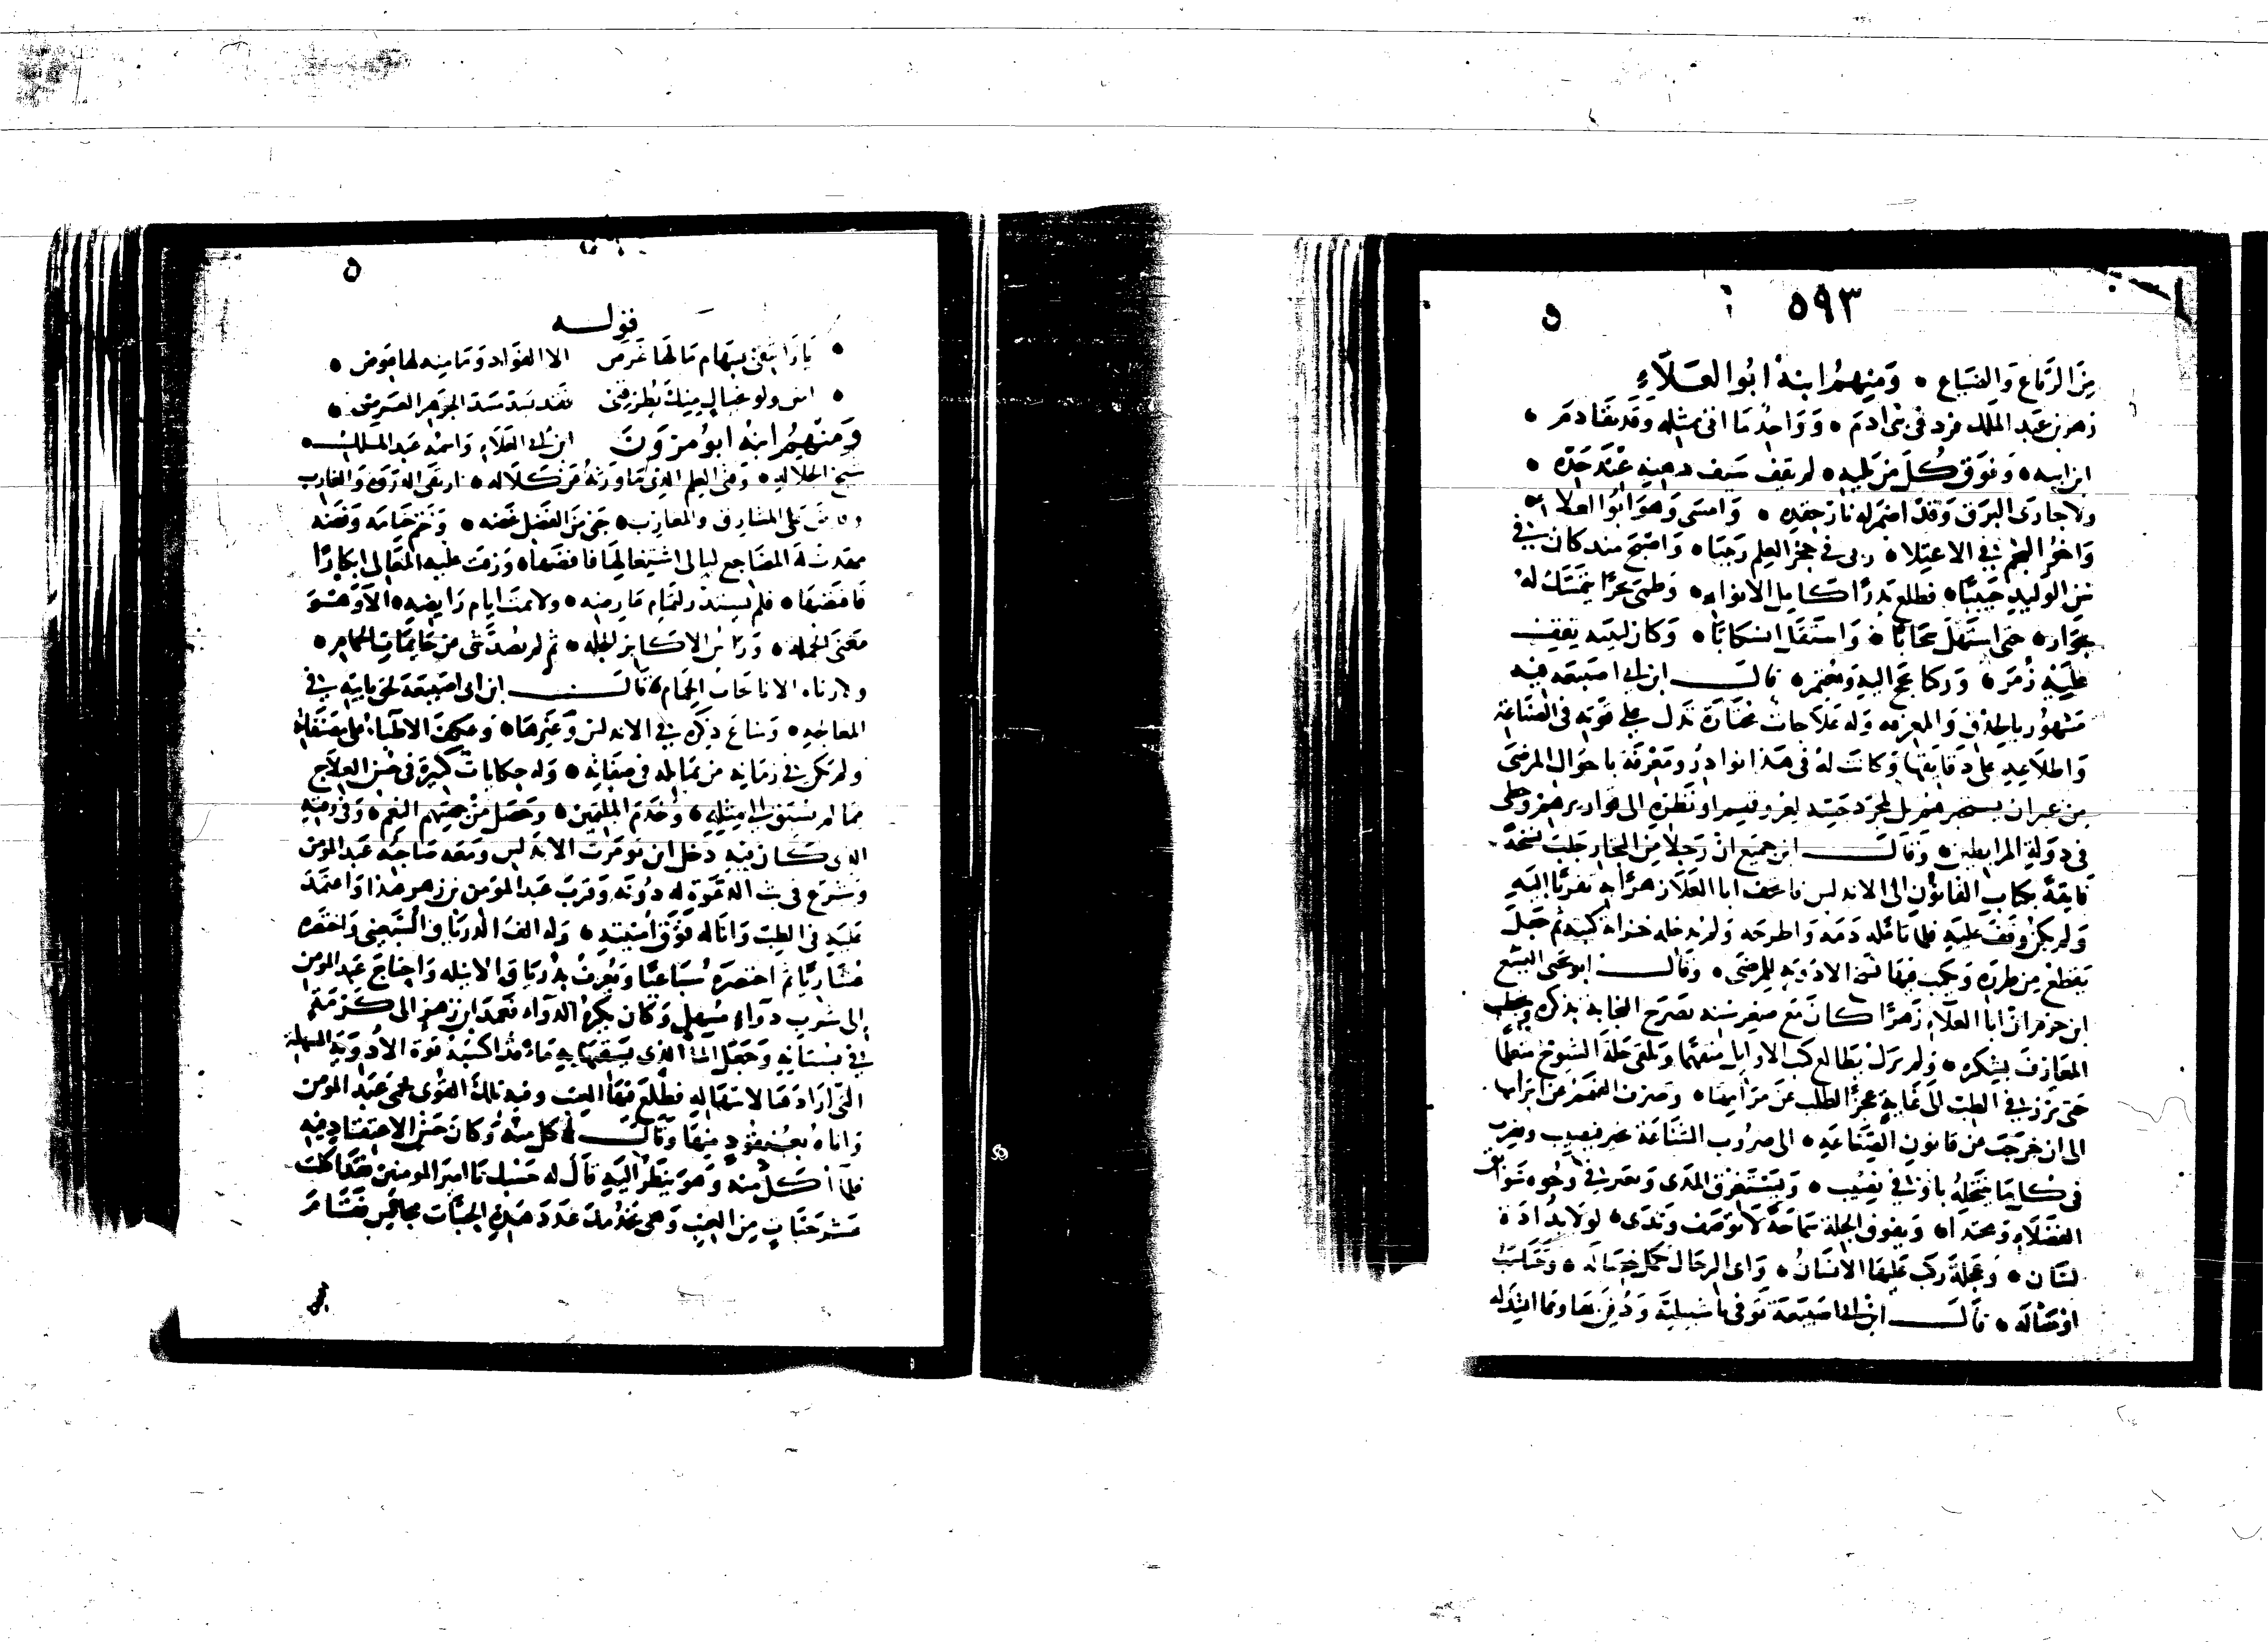 ٥٩٣
من الرعاع والضياع ٥ ومنهم ابنه ابو العلاء
زهر بن عبد الملك فرد في بني ادم ٥ وواحد ما اتى بمثله وقد تقادم ٥
ابن ابيه ٥ وفوق كل من يليه ٥ لم يقف سيف ذهنه عند حده ٥
ولا جارى البرق وقد اضرم له نار حقده ٥ وامسى وهو ابو العلا
واخو النجم في الاعتلا ٥ ربى في حجر العلم رحبا ٥ واصبح منذ كان في
سن الوليد حبيبا ٥ فطلع بدرا كامل الانواء ٥ وطمى بحرا يتمسك له
بجوار ٥ حتى استهل سحابا ٥ واستقل انسكابا ٥ وكان لبيته يقف
عليه زمر ٥ وركابه تحج اليه وتعتمر ٥ قال ابن ابي اصيبعة فيه
مشهور بالحذق والمعرفه وله علاجات مختارة تدل على قوته في الصناعة
واطلاعه على دقايقها وكانت له في هذا نوادر ومعرفة باحوال المرضى
من غير ان يستخبرهم بل بمجرد جسه لعروقهم او نظره الى قواريرهم وحظى
في دولة المرابطين ٥ وقال ابن جميع ان رجلا من التجار جلب نسخة
فايقة بكتاب القانون الى الاندلس فاتحف ابا العلا زهرا به تقربا اليه
ولم يكن وقف عليه فلما تامله ذمه واطرحه ولم يدخله خزانة كتبه ثم جعل
يقطع من طرره ويكتب فيها نسخ الادوية للمرضى ٥ وقال ابو يحيى اليسع
ابن حزم ان ابا العلاء زهرا كان مع صغر سنه تصرخ النجابة بذكره وتخطب
المعارف بشكره ٥ ولم يزل يطالع كتب الاوايل متفهما ويلقى جلة الشيوخ متعلما
حتى برز في الطب الى غاية عجز الطلب عن مرامها ٥ وضعف الفهم عن ابرامها
الى ان خرجت عن قانون الصناعه ٥ الى ضروب الشناعة يخبر فيصيب ويضرب
في كل ما ينتحله باوفى نصيب ٥ ويستغرق المدى ويغبر في وجوه سوابق
الفضلاء ومحتدا ٥ ويفوق الجلة سماحة لا توصف وندى ٥ لولا بذاذة
لسان ٥ وعجلة ركب عليها الانسان ٥ واى الرجال تكمل خصاله ٥ وتتناسب
اوصاله ٥ قال ابن ابي اصيبعة توفى باشبيلية ودفن بها ومما انشد له
قوله
يا راشقي بسهام ما لها غرض الا الفواد وما منه لها عوض
امنن ولو بخيال منك يطرقني فقد يسد مسد الجوهر العرض
ومنهم ابنه ابو مروان ابن ابي العلاء واسمه عبد الملك
شيخ الجلاله ٥ وفتى العلم الذي ما ورثه من كلاله ٥ ارتقى الذرى والغارب
على المشارق والمغارب ٥ جنى من الفضل غضه ٥ وختم ختامه وفضه
له المضاجع ليالي اشتغالها فاقضها ٥ وزفت عليه المعالي ابكارا
فافتضها ٥ فلم يستدر لغمام عارضه ٥ ولا تمت ايام رايضه الا وهو
معنى الجمله ٥ وراس الاكابر الجله ٥ ثم لم يصد شي من حايمات الحمام ٥
ولا رناه الا ناتحات الحمام ٥ قال ابن ابي اصيبعة لحق بابيه في
المعالجه ٥ وشاع ذكره في الاندلس وغيرها ٥ وعكفت الاطباء على مصنفاته
ولم يكن في زمانه من يماثله في صفاته ٥ وله حكايات كثيرة في حسن العلاج
مما لم يسبق الى مثله ٥ وخدم الملثمين ٥ وحصل من جهتهم النعم ٥ وفي وقته
الذي كان فيه دخل ابن تومرت الاندلس ومعه صاحبه عبد المومن
وشرع في بث الدعوة له دونه وقرب عبد المومن بن زهر هذا واعتمد
عليه في الطب واناله فوق امنيته ٥ وله الف الدرياق السبعيني واختصره
عشاريا ثم اختصره سباعيا ويعرف بدرياق الانتله واحتاج عبد المومن
الى شرب دواء مسهل وكان يكره الدواء فعمد ابن زهر الى كرمة
في بستانه وجعل الماء الذي يسقيها به ماء قد اكتسب قوة الادوية المسهلة
التي اراد فلما طلع فيها العنب وفيه تلك القوى حمى عبد المومن
واتاه بعنقود منها وقال له كل منه وكان حسن الاعتقاد فيه
فلما اكل منه وهو ينظر اليه قال له حسبك يا امير المومنين فقد اكلت
عشر حبات من العنب وهي تخدمك عدد هذه الحبات مجالس فقام